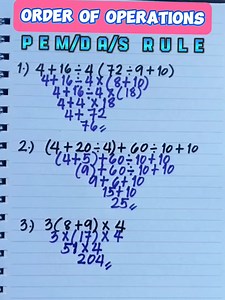 ORDER OF OPERATIONS
PEM/DA/S RULE
1.) 4+16÷4(72÷9+10)
4+16÷4×(8+10)
4+16÷4×(18)
4+4×18
4+72
76
2.) (4+20÷4)+60÷10+10
(4+5)+60÷10+10
(9)+60÷10+10
9+6+10
15+10
25
3.) 3(8+9)×4
3×(17)×4
51×4
204